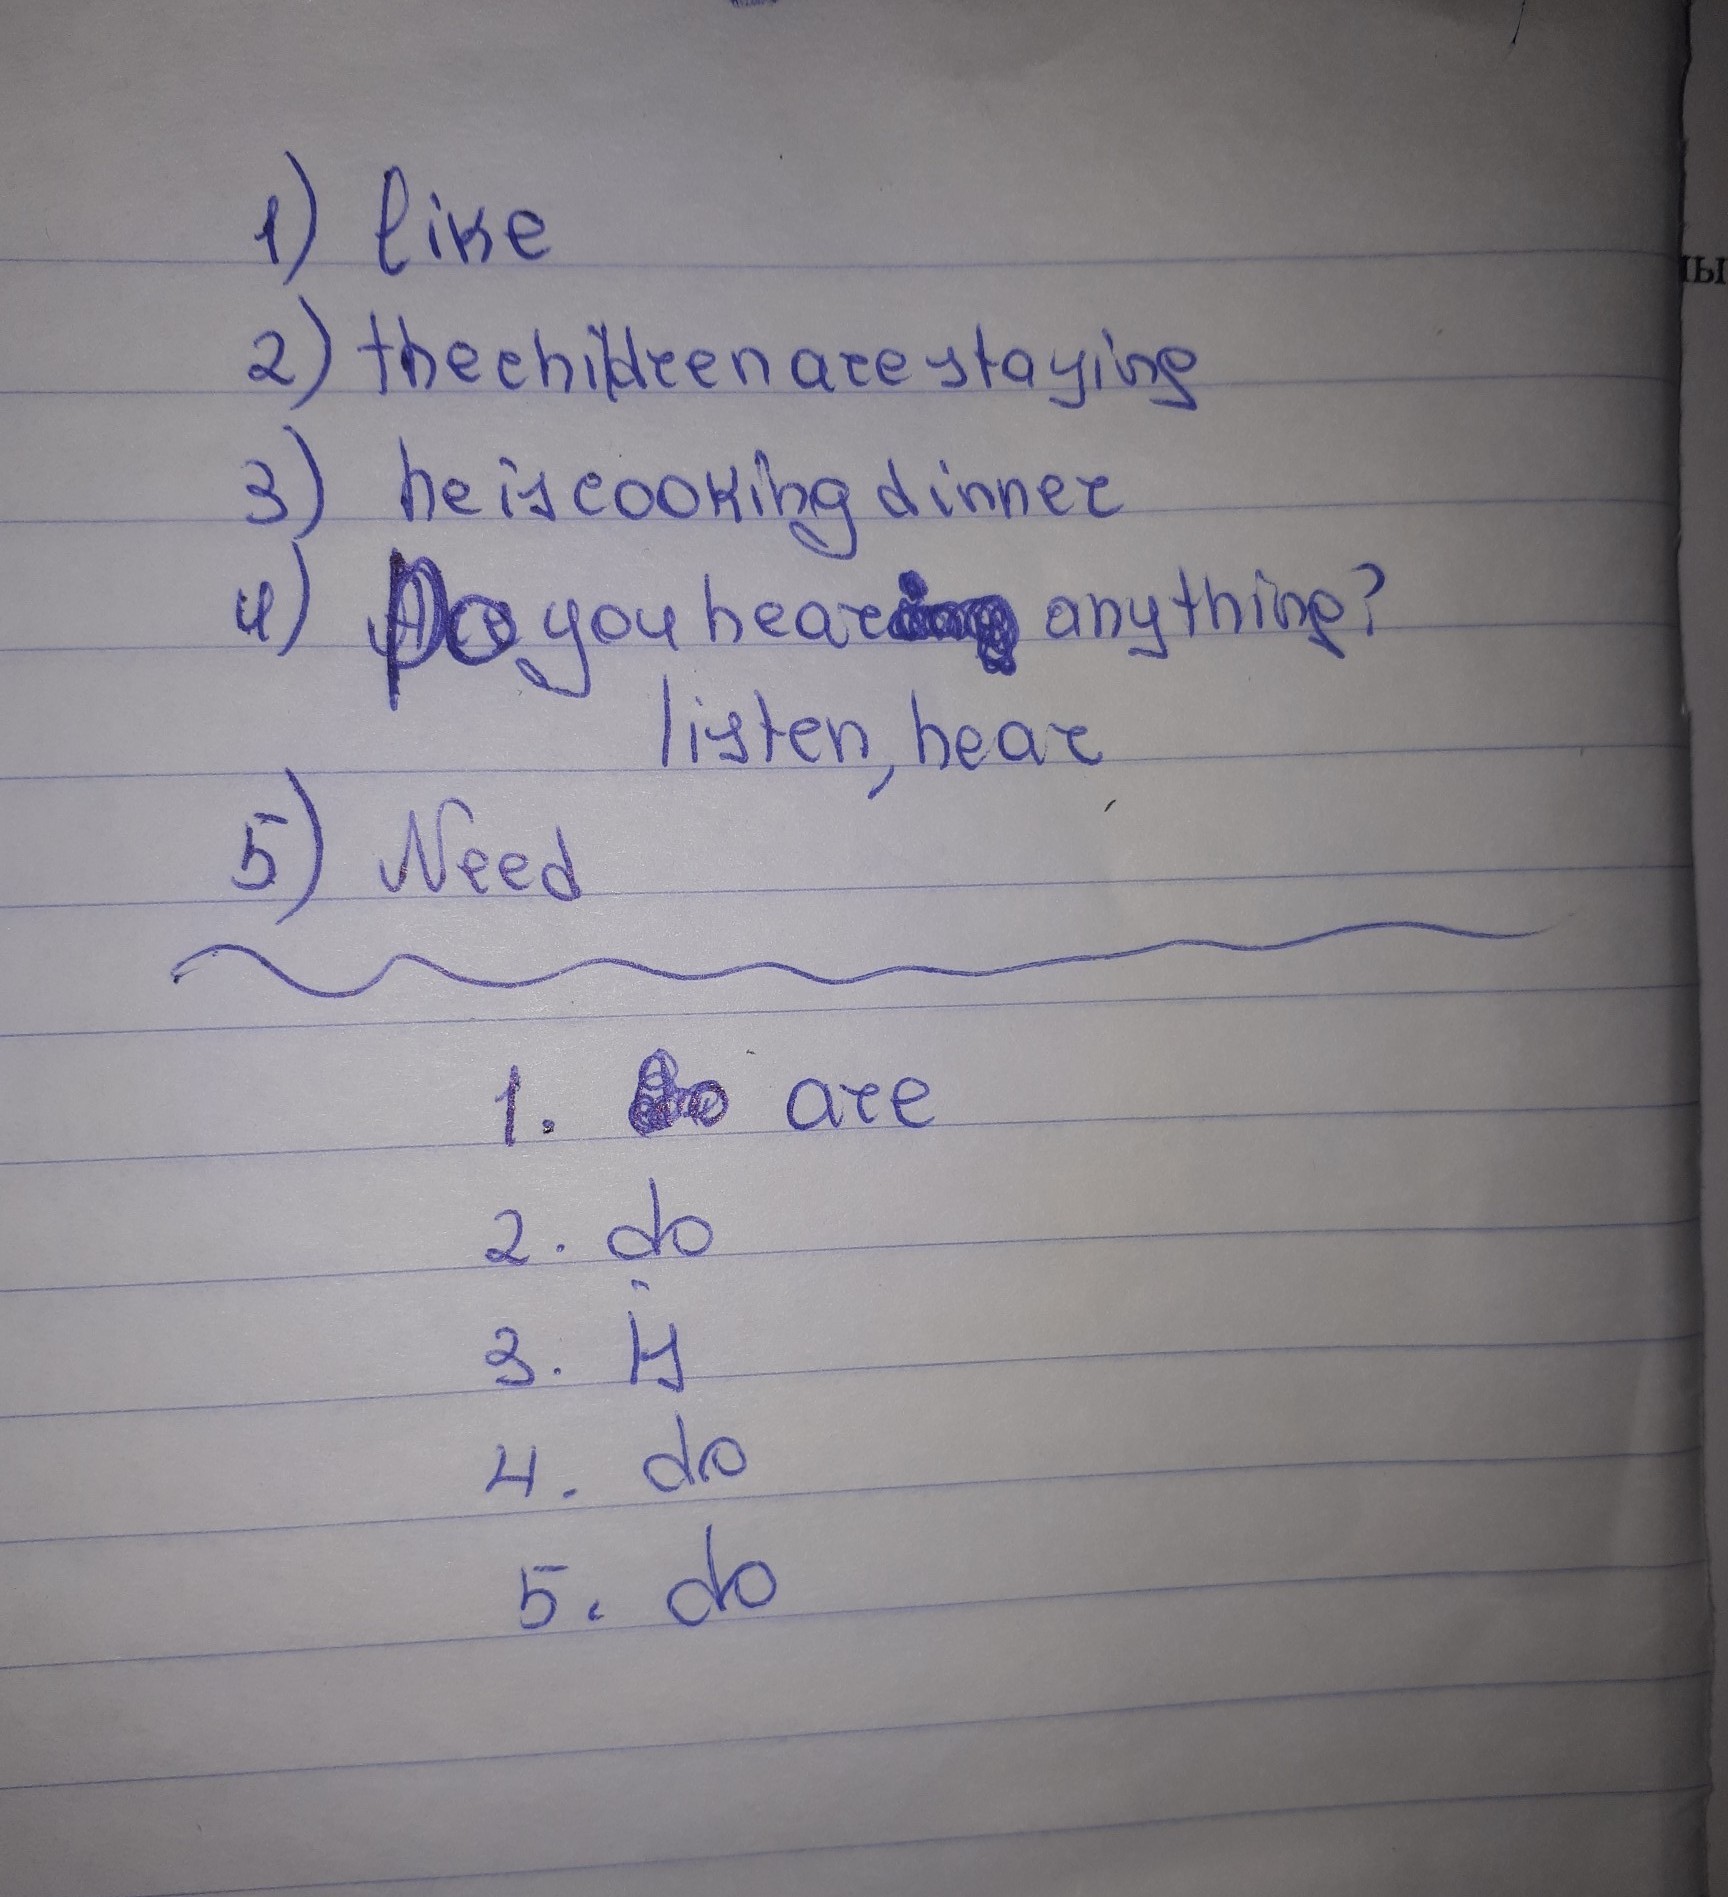 1) like
2) the children are staying
3) he is cooking dinner
4) Do you hear anything?
listen, hear
5) Need
1. are
2. do
3. is
4. do
5. do
ы